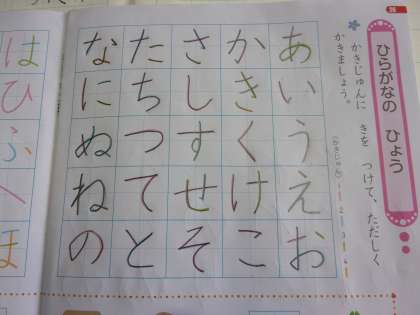 ひらがなの ひょう
かきじゅんに きを つけて、ただしく
かきましょう。
あいうえお
かきくけこ
さしすせそ
たちつてと
なにぬねの
はひふへほ